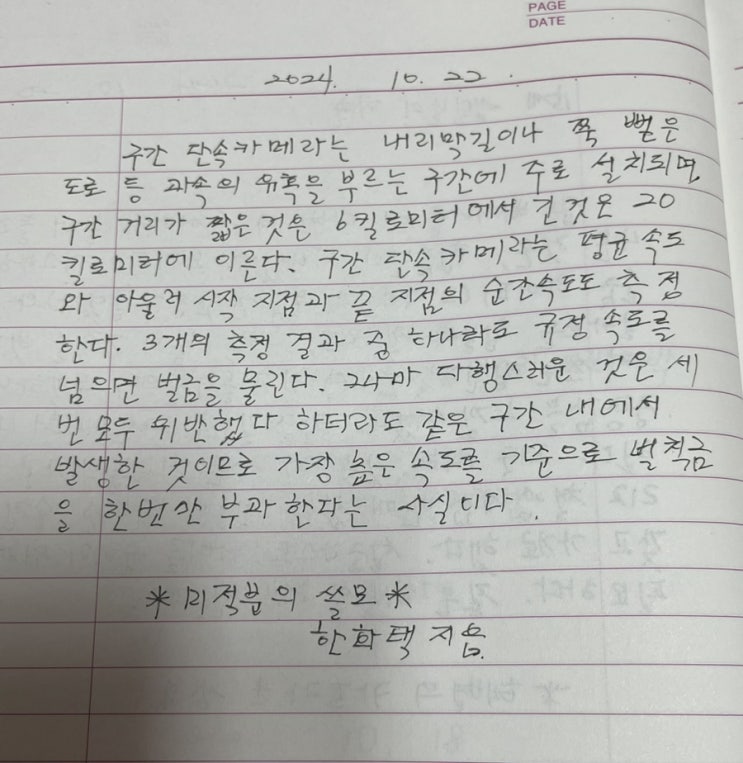 PAGE
DATE
2024. 10. 22.
구간 단속카메라는 내리막길이나 쭉 뻗은
도로 등 과속의 유혹을 부르는 구간에 주로 설치되면
구간 거리가 짧은 것은 6킬로미터에서 긴 것은 20
킬로미터에 이른다. 구간 단속카메라는 평균 속도
와 아울러 시작 지점과 끝 지점의 순간속도도 측정
한다. 3개의 측정 결과 중 하나라도 규정 속도를
넘으면 벌금을 물린다. 그나마 다행스러운 것은 세
번 모두 위반했다 하더라도 같은 구간 내에서
발생한 것이므로 가장 높은 속도를 기준으로 벌칙금
을 한번만 부과한다는 사실이다.
*미적분의 쓸모*
한화택 지음.